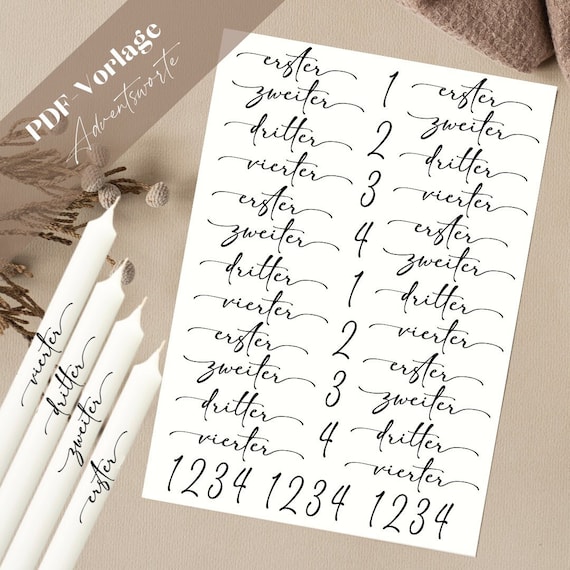 PDF-Vorlage
Adventsworte
erster
zweiter
dritter
vierter
erster
zweiter
dritter
vierter
erster
zweiter
dritter
vierter
1
2
3
4
1
2
3
4
erster
zweiter
dritter
vierter
erster
zweiter
dritter
vierter
erster
zweiter
dritter
vierter
1234 1234 1234
vierter
dritter
zweiter
erster